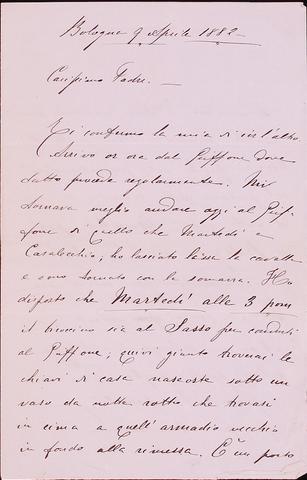 Bologna 9 Aprile 1882
Carissimo Padre. —
Ti confermo la mia di ier l'altro.
Arrivo or ora dal Puffone dove
tutto procede regolarmente. Mi
tornava meglio andare oggi al Puf-
fone di quello che Martedì a
Casalecchio, ho lasciato lassù la cavalla
e sono tornato con la somara. Ho
disposto che Martedì alle 3 pom
il biroccino sia al Sasso per condurti
al Puffone, quivi giunto troverai le
chiavi di casa nascoste sotto un
vaso da notte rotto che trovasi
in cima a quell'armadio vecchio
in fondo alla rimessa. È un posto